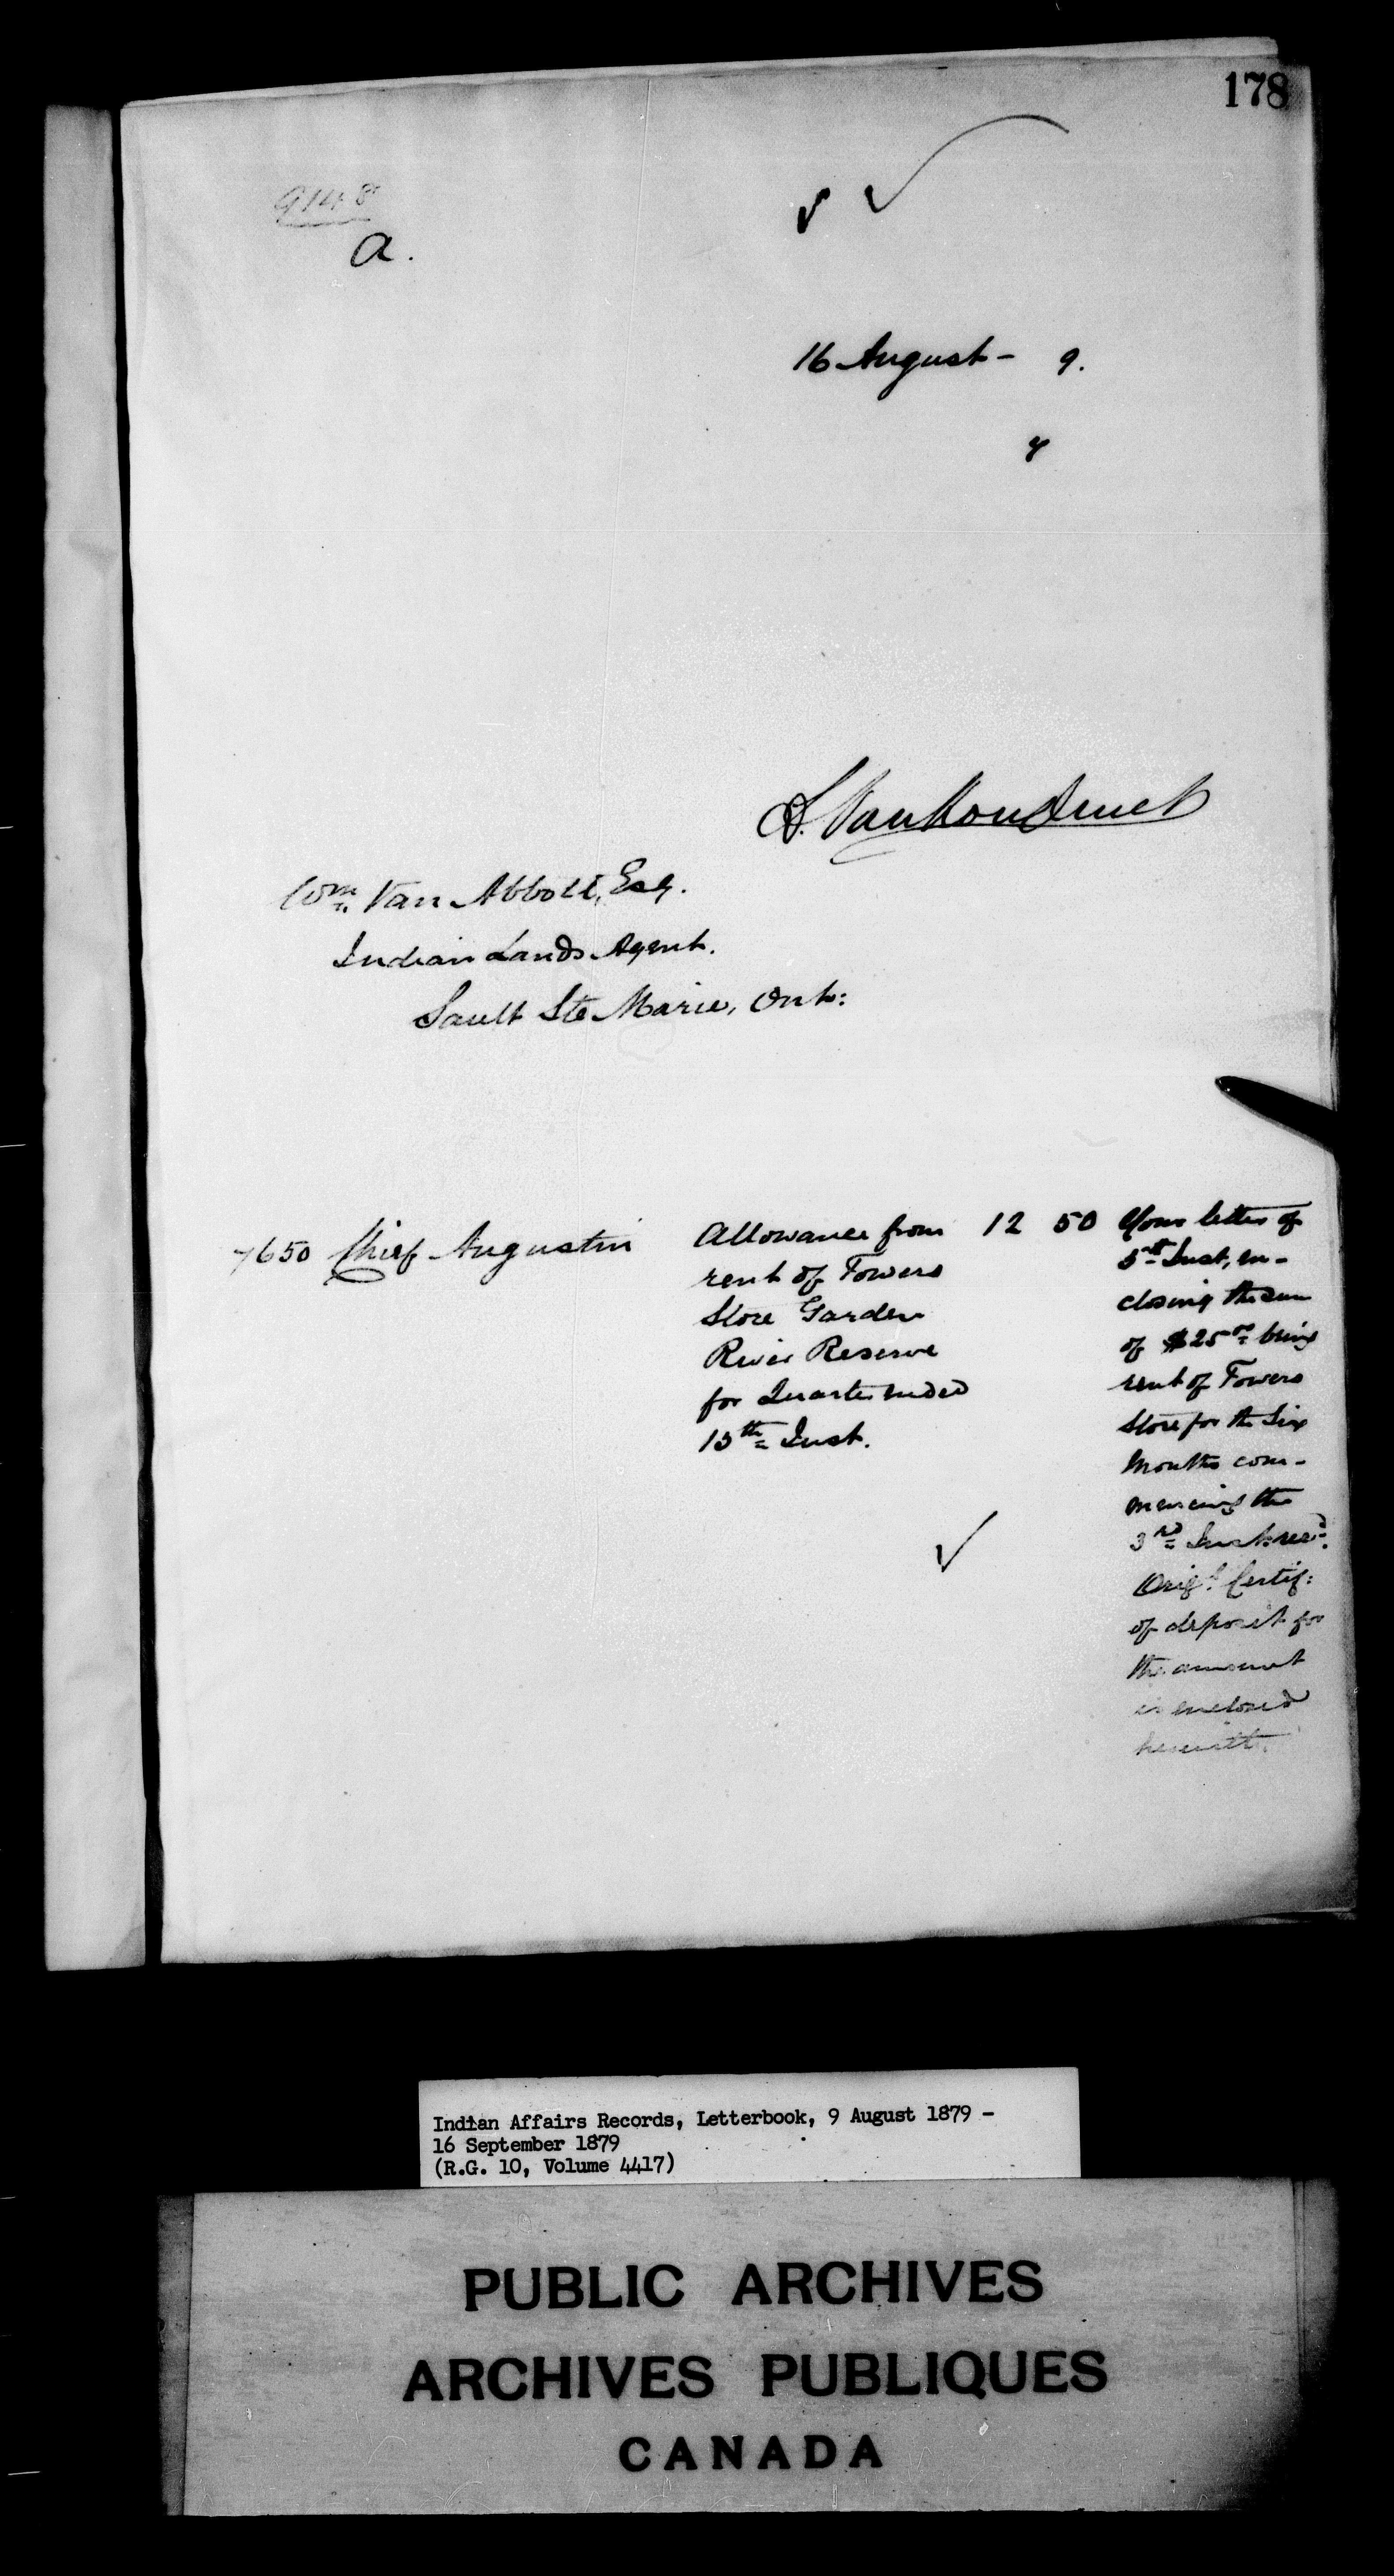 178
9148
a.
16 August - 9.
L. Vankoughnet
Wm Van Abbott, Esq.
Indian Lands Agent.
Sault Ste Marie, Ont:
7650 Chief Augustin
Allowance from
rent of Towers
Store Garden
River Reserve
for Quarter ended
15th Inst.
12 50
Your letter of
5th Inst, en-
closing the sum
of $25.00 being
rent of Towers
Store for the Six
Months com-
mencing the
3rd Inst. recd.
Origl. Certif:
of deposit for
the amount
is enclosed
herewith.
Indian Affairs Records, Letterbook, 9 August 1879 -
16 September 1879
(R.G. 10, Volume 4417)
PUBLIC ARCHIVES
ARCHIVES PUBLIQUES
CANADA